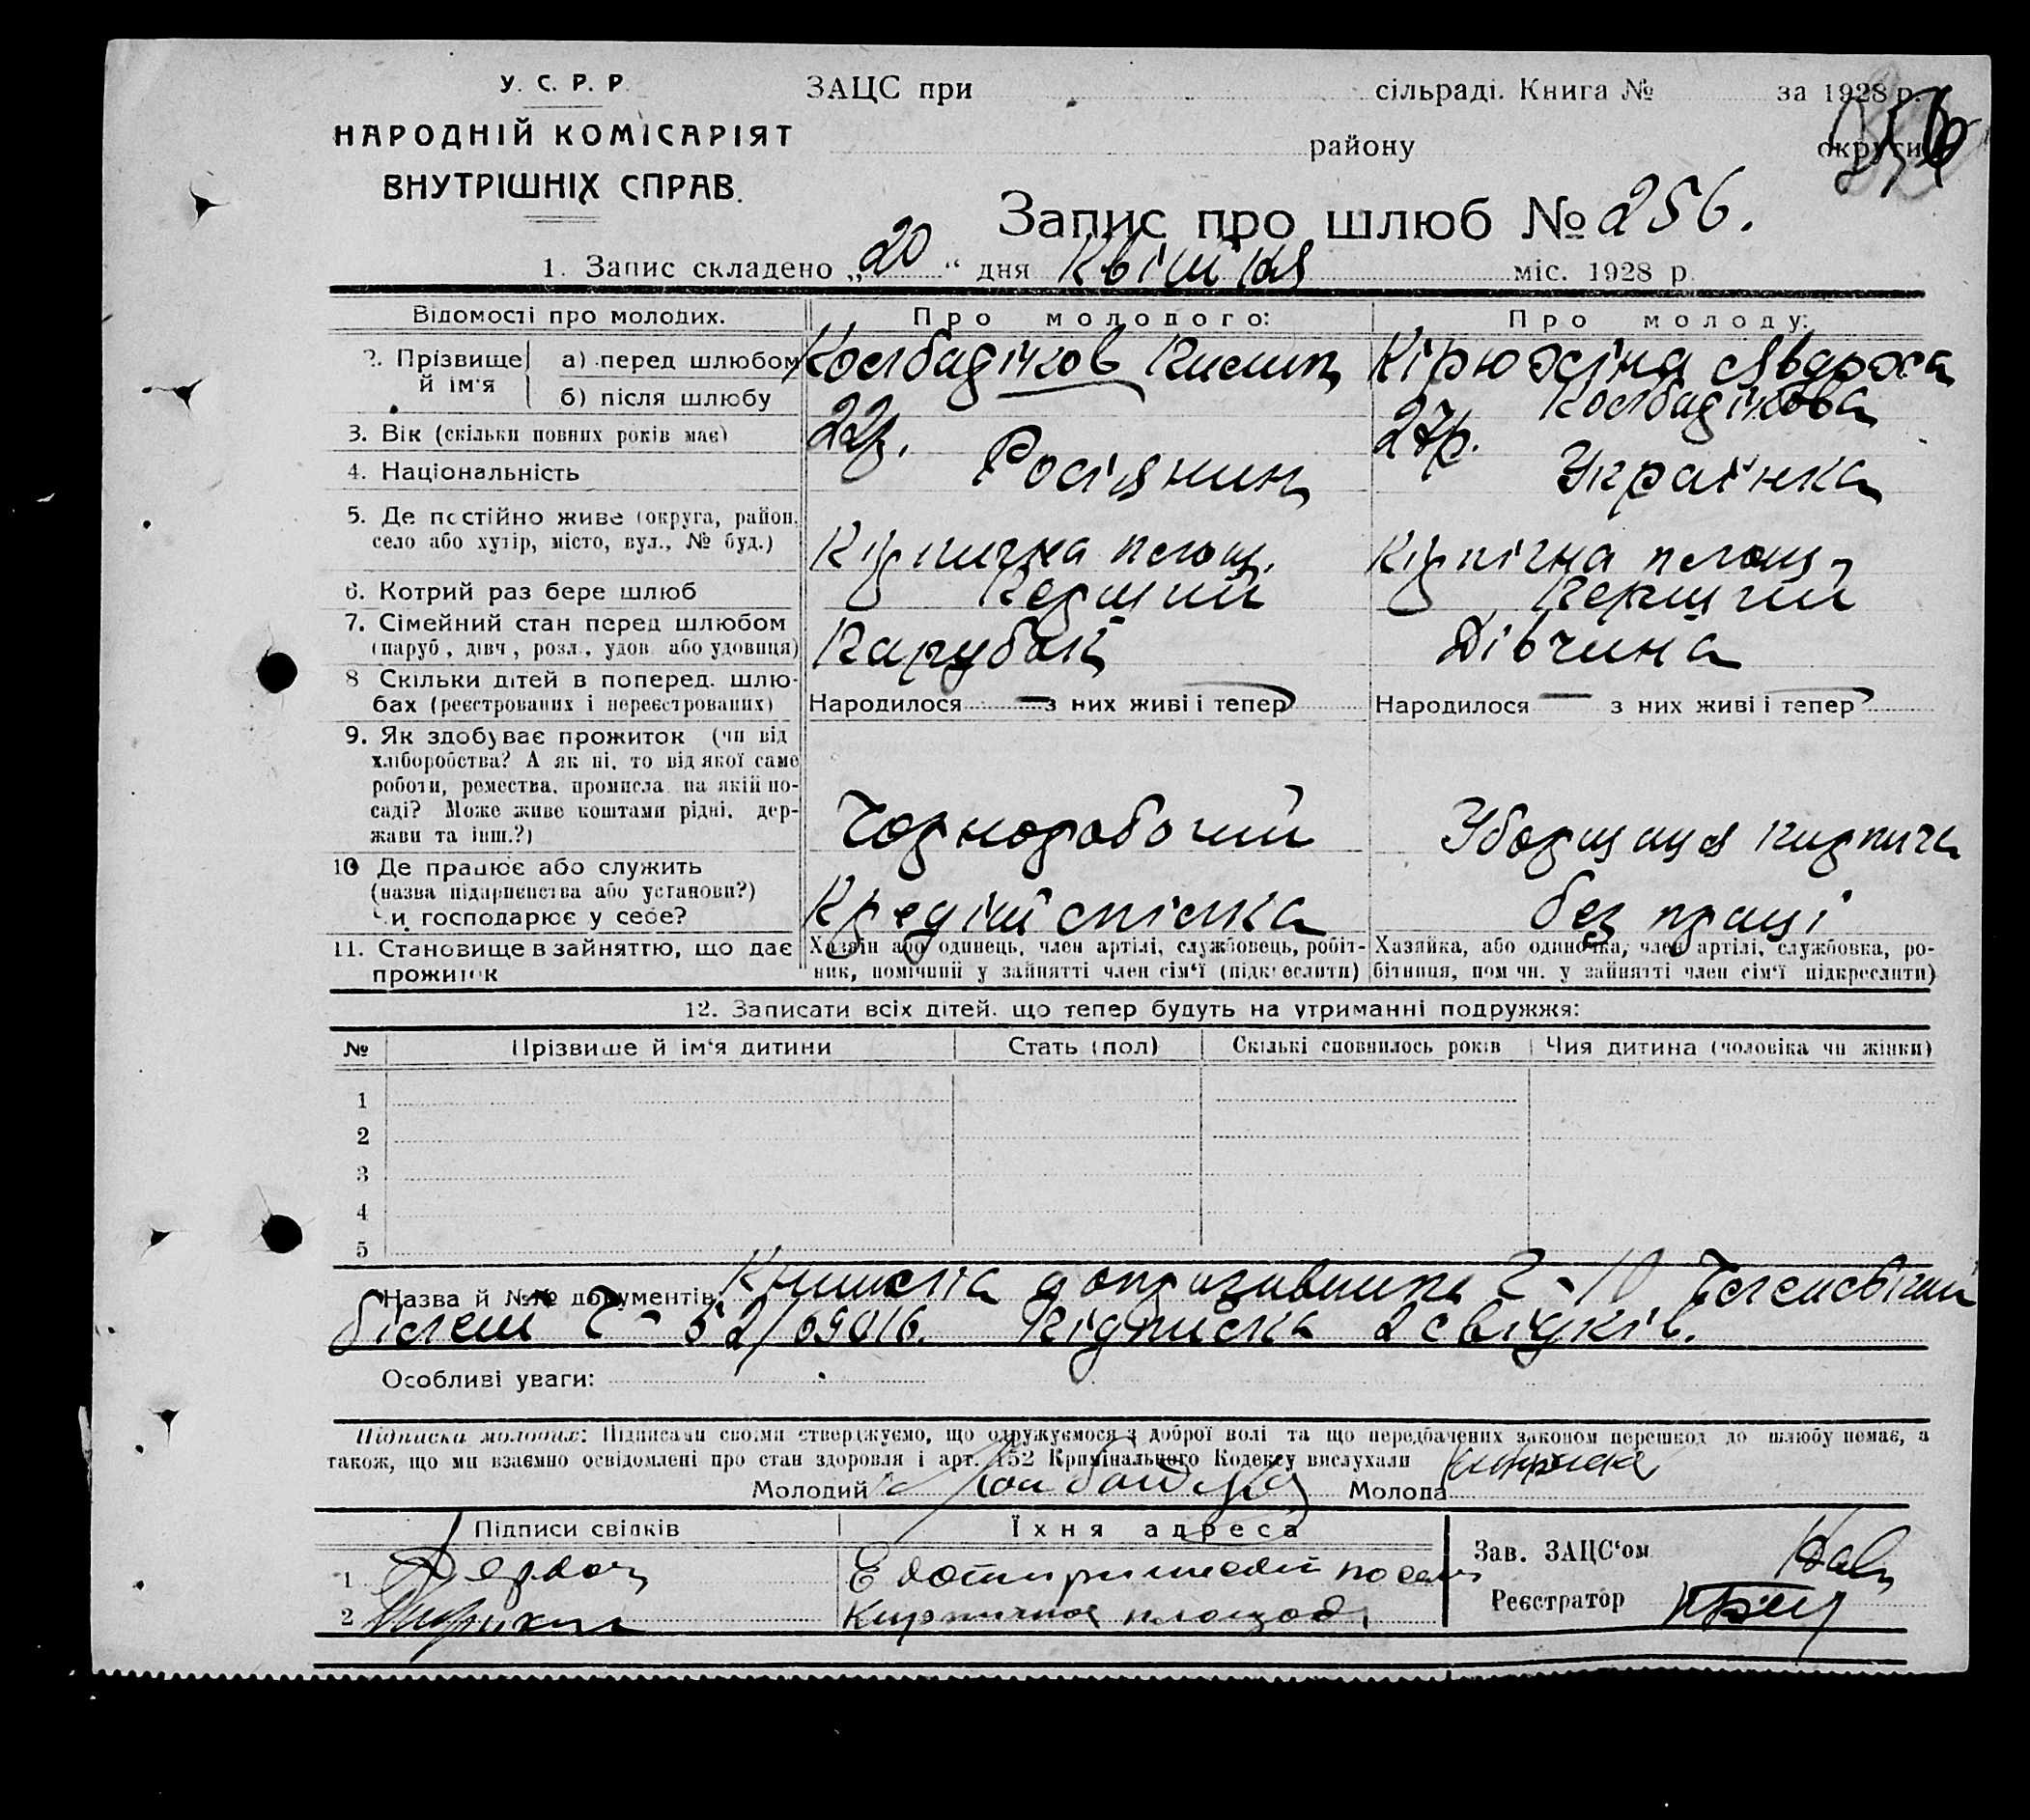 У. С. Р. Р.
НАРОДНІЙ КОМІСАРІЯТ
ВНУТРІШНІХ СПРАВ.
ЗАЦС при сільраді. Книга № за 1928 р.
району округи
Запис про шлюб № 256.
1. Запис складено „20“ дня Квітня міс. 1928 р.
Відомості про молодих. Про молодого: Про молоду:
2. Прізвище й ім'я а) перед шлюбом Колбадічков Кірюхіна
б) після шлюбу Колбадічкова
3. Вік (скільки повних років має) 22р. 27р.
4. Національність Росіянин Українка
5. Де постійно живе (округа, район, село або хутір, місто, вул., № буд.) Кірпична площ. Кірпічна площ.
6. Котрий раз бере шлюб Перший Перший
7. Сімейний стан перед шлюбом (паруб., дівч., розл., удов. або удовиця) Парубок Дівчина
8 Скільки дітей в поперед. шлюбах (реєстрованих і нереєстрованих) Народилося — з них живі і тепер Народилося — з них живі і тепер
9. Як здобуває прожиток (чи від хліборобства? А як ні, то від якої саме роботи, ремества, промисла на якій посаді? Може живе коштами рідні, держави та інш.?) Чорноробочий Уборщиця кирпича
10 Де працює або служить (назва підприємства або установи?) Чи господарює у себе? Кредіт спілка без праці
11. Становище в зайняттю, що дає прожиток Хазяїн або одинець, член артілі, службовець, робітник, помічний у зайнятті член сім'ї (підкреслити) Хазяйка, або одиночка, член артілі, службовка, робітниця, помічн. у зайнятті член сім'ї підкреслити)
12. Записати всіх дітей, що тепер будуть на утриманні подружжя:
№ Прізвище й ім'я дитини Стать (пол) Скількі сповнилось років Чия дитина (чоловіка чи жінки)
1
2
3
4
5
Назва й №№ документів Книжка
білет Підписка 2 свідків.
Особливі уваги:
Підписка молодих: Підписами своїми стверджуємо, що одружуємося з доброї волі та що передбачених законом перешкод до шлюбу немає, а
також, що ми взаємно освідомлені про стан здоровля і арт. 152 Кримінального Кодексу вислухали
Молодий Молода
Підписи свідків Їхня адреса
Зав. ЗАЦС'ом
1
2 Кирпичная площадь
Реєстратор